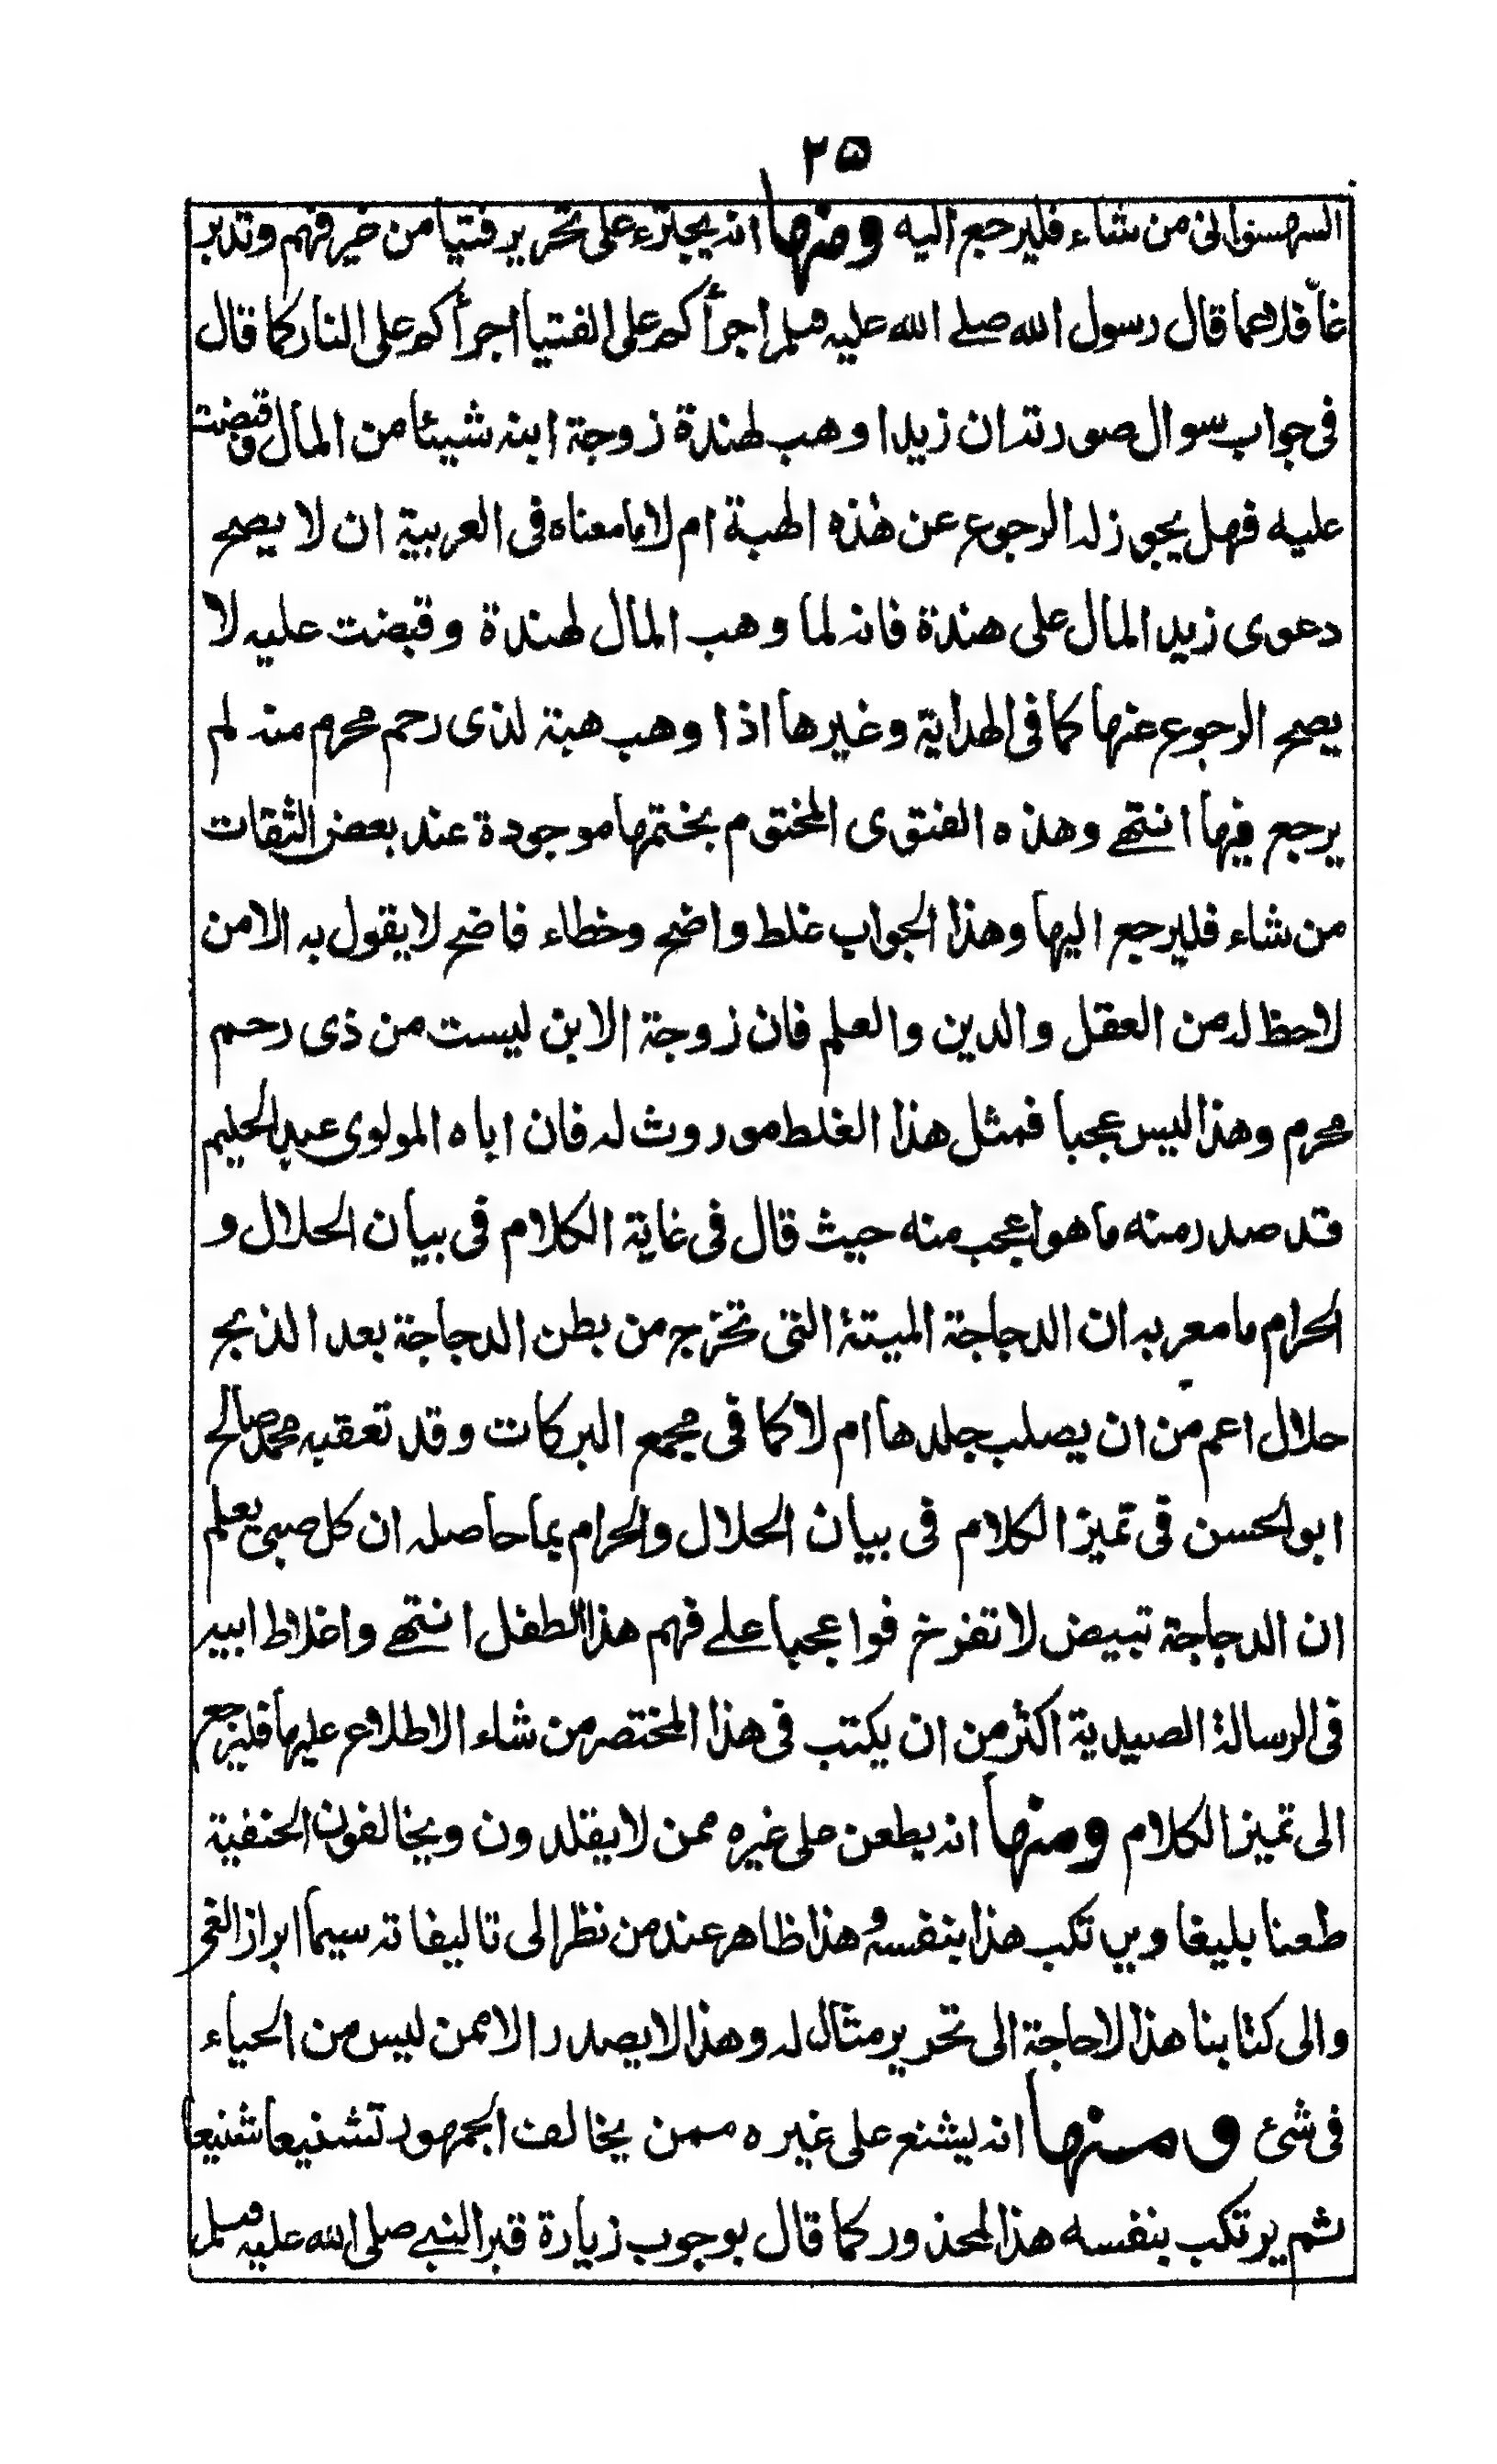 ٢٥
السهسوانى من شاء فليرجع اليه ومنها انه يجترء على تحرير فتيا من غير فهم وتدبر
غافلا عما قال رسول الله صلے الله عليه وسلم اجرأكم على الفتيا اجرأكم على النار كما قال
فى جواب سوال صورته ان زيدا وهب لهندة زوجة ابنه شيئا من المال وقبضت
عليه فهل يجوز له الرجوع عن هذه الهبة ام لا بما معناه فى العربية ان لا يصح
دعوى زيد المال على هندة فانه لما وهب المال لهندة وقبضت عليه لا
يصح الرجوع عنها كما فى الهداية وغيرها اذا وهب هبة لذى رحم محرم منه لم
يرجع فيها انتهے وهذه الفتوى المختوم بختمها موجودة عند بعض الثقات
من شاء فليرجع اليها وهذا الجواب غلط واضح وخطاء فاضح لا يقول به الا من
لاحظ له من العقل والدين والعلم فان زوجة الابن ليست من ذى رحم
محرم وهذا ليس عجبا فمثل هذا الغلط موروث له فان اباه المولوى عبد الحليم
قد صدر منه ما هو اعجب منه حيث قال فى غاية الكلام فى بيان الحلال و
الحرام ما معربه ان الدجاجة الميتة التى تخرج من بطن الدجاجة بعد الذبح
حلال اعم من ان يصلب جلدها ام لا كما فى مجمع البركات وقد تعقبه محمد صالح
ابو الحسن فى تميز الكلام فى بيان الحلال والحرام بما حاصله ان كل صبى يعلم
ان الدجاجة تبيض لا تفرخ فوا عجبا علے فهم هذا الطفل انتهے واغلاط ابيه
فى الرسالة الصيدية اكثر من ان يكتب فى هذا المختصر من شاء الاطلاع عليها فليرجع
الى تميز الكلام ومنها انه يطعن على غيره ممن لا يقلدون ويخالفون الحنفية
طعنا بليغا ويرتكب هذا بنفسه وهذا ظاهر عند من نظر الى تاليفاته سيما ابراز الغى
والى كتابنا هذا لا حاجة الى تحرير مثال له وهذا لا يصدر الا ممن ليس من الحياء
فى شئ ومنها انه يشنع على غيره ممن يخالف الجمهور تشنيعا شنيعا
ثم يرتكب بنفسه هذا المحذور كما قال بوجوب زيارة قبر النبے صلى الله عليه وسلم